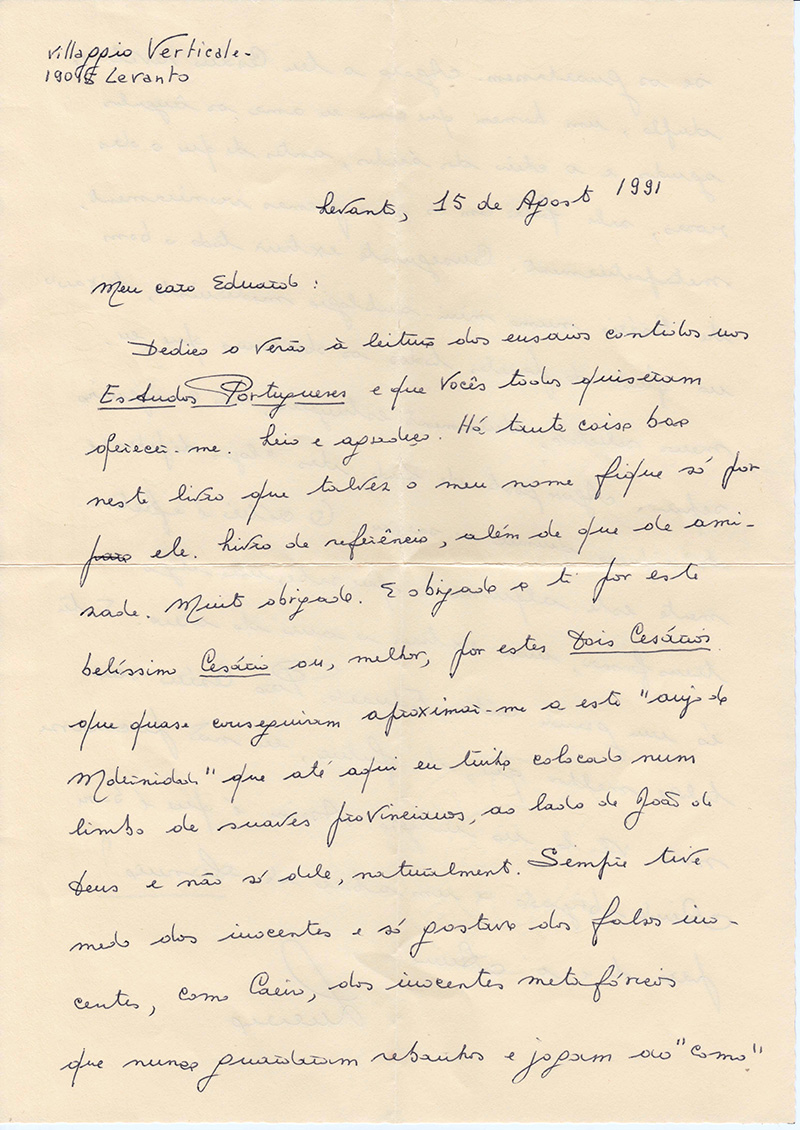 Villaggio Verticale -
19015 Levanto
Levanto, 15 de Agosto 1991
Meu caro Eduardo :
Dedico o Verão à leitura dos ensaios contidos nos
Estudos Portugueses e que Vocês todos quiseram
oferecer-me. Leio e agradeço. Há tanta coisa boa
neste livro que talvez o meu nome fique só por
para ele. Livro de referência, além de que de ami-
zade. Muito obrigado. E obrigado a ti por este
belíssimo Cesário ou, melhor, por estes Dois Cesários
que quase conseguiram aproximar-me a este "anjo da
Modernidade" que até aqui eu tinha colocado num
limbo de suaves provincianos, ao lado de João de
Deus e não só dele, naturalmente. Sempre tive
medo dos inocentes e só gostava dos falsos ino-
centes, como Caeiro, dos inocentes metafóricos
que nunca guardaram rebanhos e jogam ao "como"